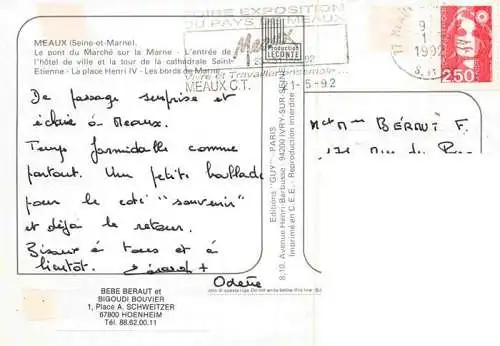 MEAUX (Seine-et-Marne).
Le pont du Marché sur la Marne - L'entrée de
l'hôtel de ville et la tour de la cathédrale Saint-
Etienne - La place Henri IV - Les bords de Marne
FOIRE EXPOSITION
DU PAYS DE MEAUX
Meaux
Production
LECONTE
Vivre et Travailler
MEAUX C.T. 21-5-92
9
1992
2,50
De passage surprise et
éclair à Meaux.
Temps formidable comme
partout. Un petite ballade
pour le coté "souvenir"
et déjà le retour.
Bisoux à tous et à
bientot. Gérard +
Odette
Editions "GUY" - PARIS
8-10, Avenue Henri Barbusse - 94200 IVRY-SUR-SEINE
Imprimé en C.E.E. Reproduction interdite
BERAUT F.
BEBE BERAUT et
BIGOUDI BOUVIER
1, Place A. SCHWEITZER
67800 HOENHEIM
Tél. 88.62.00.11